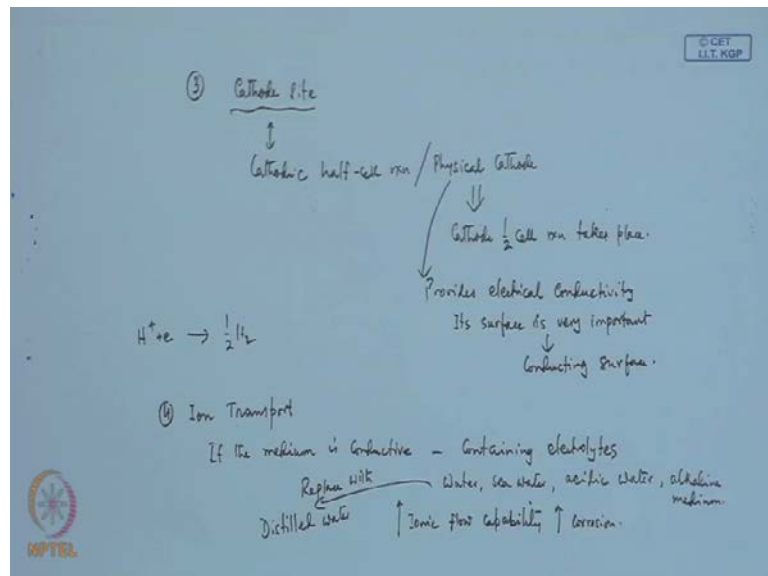 © CET
I.I.T. KGP
③ Cathode Site
↕
Cathodic half-cell rxn / Physical Cathode
⇓
Cathode 1/2 Cell rxn takes place.
Provides electrical Conductivity
Its surface is very important
↓
Conducting Surface.
H⁺+e → 1/2 H₂
④ Ion Transport
If the medium is Conductive – Containing electrolytes
Replace with Water, sea water, acidic water, alkaline medium.
Distilled water ↑ Ionic flow capability ↑ corrosion.
NPTEL